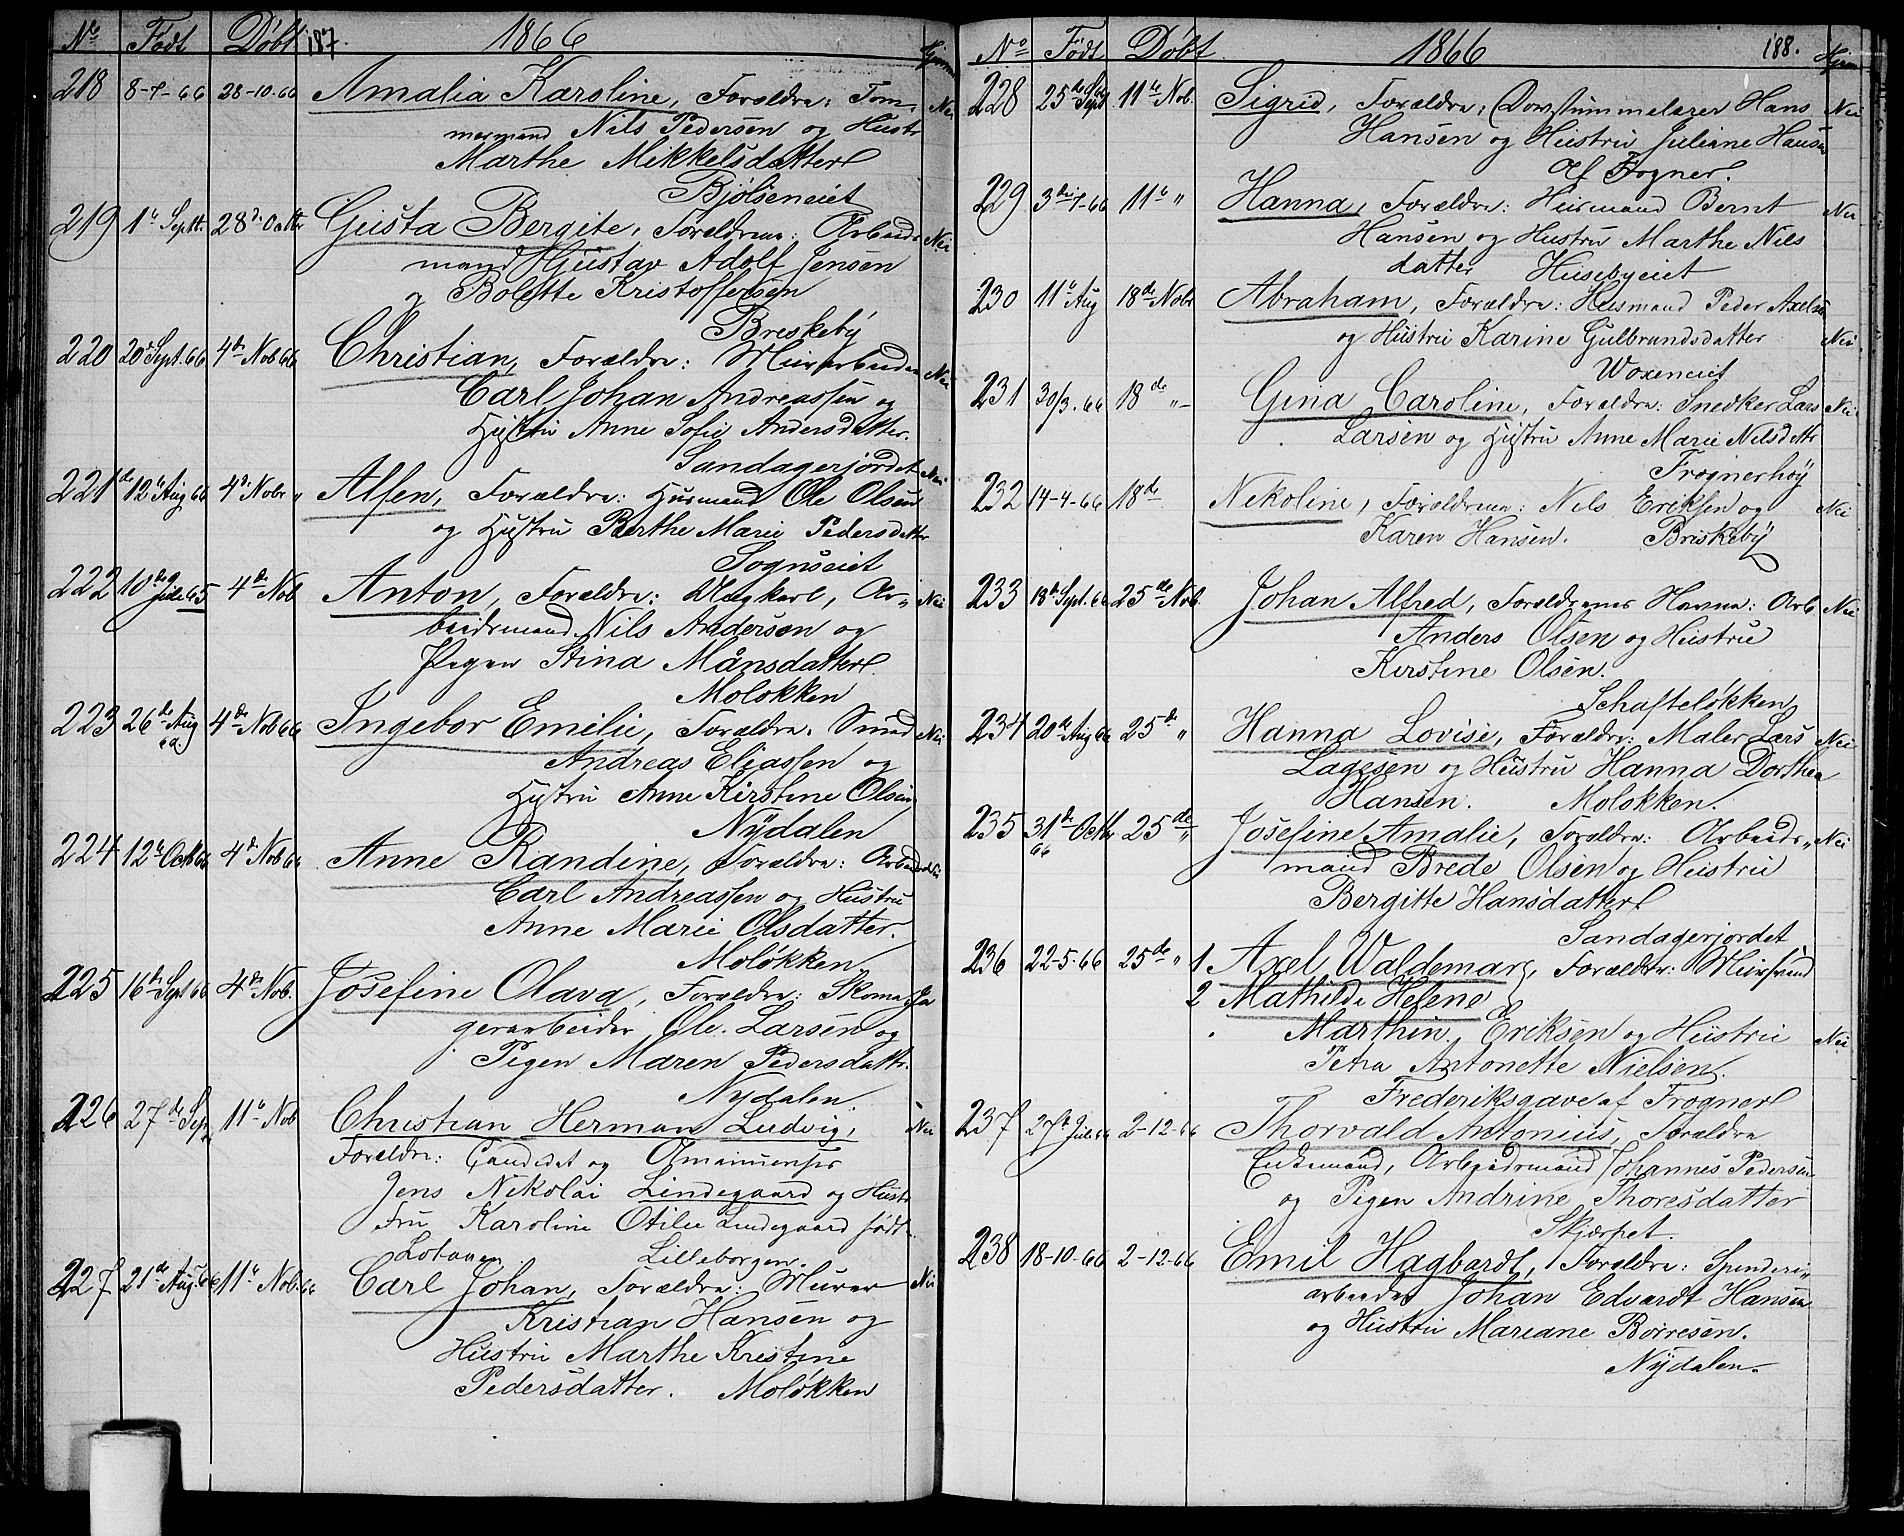 No Født Døbt 187. 1866 Hjemme
218 8-7-66 28-10-66 Amalia Karoline, Forældre: Tom- Nei
mermand Nils Pedersen og Hustr
Marthe Mikkelsdatter
Bjølseneiet
219 1te Septr. 28de Octbr Gusta Bergite, Forældrene: Arbeids Nei
mand Gustav Adolf Jensen
og Bolette Kristoffersen
Breskeby
220 20de Sept. 66 4de Nob 66 Christian, Forældre: Murarbeider Nei
Carl Johan Andreassen og
Hustru Anne Sofie Andersdatter.
Sandagerjordet
221 12te Aug 66 4de Nobr " Alfen, Forældre: Husmand Ole Olsen Nei
og Hustru Berthe Marie Pedersdatter
Sognseiet
222 10de Juli 65 4de Nob Anton, Forældre: Ungkarl, Ar- Nei
beidsmand Nils Andersen og
Pigen Stina Månsdatter
Moløkken
223 26de Aug 4de Nob 66 Ingebor Emilie, Forældre: Smed Nei
Andreas Eliassen og
Hustru Anne Kirstine Olsen
Nydalen
224 12te Octb 66 4de Nob 66 Anne Randine, Forældre: Arbeidsm Nei
Carl Andreassen og Hustru
Anne Marie Olsdatter.
Moløkken
225 16de Sept 66 4de Nob. Josefine Olava, Forældre: Skoma- Ja
gerarbeider Ole Larsen og
Pigen Maren Pedersdattr.
Nydalen.
226 27de Sept 11te Nob Christian Herman Ludvig, Nei
Forældre: Candidat og Amanuensis
Jens Nikolai Lindegaard og Hustr
Fru Karoline Otilie Lindegaard født
Lilleborgen.
227 21de Aug. 66 11te Nob. 66 Carl Johan, Forældre: Murer Nei
Kristian Hansen og
Hustru Marthe Kristine
Pedersdatter. Moløkken
No Født Døbt 1866 188. Hjem
228 25de Sept 11te Nob. Sigrid, Forældre: Døvstummelærer Hans Nei
Hansen og Hustru Juliane Hansen
Af Frogner.
229 3de-7-66 11te " Hanna, Forældre: Husmand Bernt Nei
Hansen og Hustru Marthe Nils
datter Husebyeiet
230 11te Aug 18de Nobr Abraham, Forældre: Husmand Peder Axelsen
og Hustru Karine Gulbrandsdatter Nei
Woxeneiet
231 30/3.66 18de " Gina Caroline, Forældre: Snedker Lars Nei
Larsen og Hustru Anne Marie Nilsdattr
Frognerhøy
232 14-4-66 18de Nekoline, Forældrene: Nils Eriksen og Nei
Karen Hansen. Briskeby
233 18de Sept. 66 25de Nob. Johan Alfred, Forældrenes Navne: Arb Nei
Anders Olsen og Hustru
Kirstine Olsen.
Schafteløkken
234 20de Aug 66 25de " Hanna Lovise, Forældre: Maler Lars Nei
Lagesen og Hustru Hanna Dorthea
Hansen. Moløkken.
235 31de Octbr 66 25de " Josefine Amalie, Forældre: Arbeids- Nei
mand Brede Olsen og Hustru
Bergitte Hansdatter
Sandagerjordet
236 22-5-66 25de " 1 Axel Waldemar, Forældre: Mursvend
2 Mathilde Helene
Marthin Eriksen og Hustru Nei
Petra Antonette Nielsen.
Frederiksgave af Frogner
237 27de Juli 66 2-12-66 Thorvald Antonius, Forældre
Enkemand, Arbeidsmand Johannes Pedersen
og Pigen Andrine Thoresdatter
Skjærpet.
238 18-10-66 2-12-66 Emil Hagbardt, Forældre: Spinderi-
arbeider Johan Edvardt Hansen
og Hustru Mariane Börresen.
Nydalen.